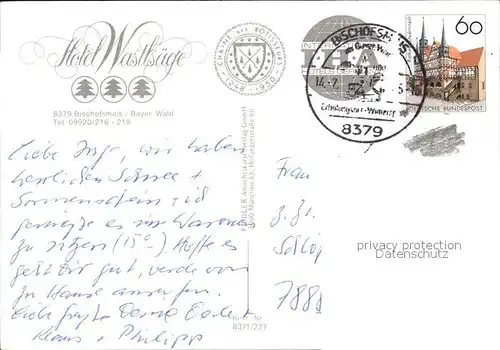 Hotel Wastlsäge
8379 Bischofsmais / Bayer. Wald
Tel. 09920/216 - 219
CHAINE DES ROTISSEURS
1248 - 1950
INTERNATIONAL
IHA
BISCHOFSMAIS
14.-2.
Erholungsort - Wintersport
8379
60
DEUTSCHE BUNDESPOST
Liebe Inge, wir haben
herrlichen Schnee +
Sonnenschein + ich
genieße es im Warmen
zu sitzen (15°) Hoffe es
geht Dir gut, werde von
zu Hause anrufen.
Liebe Grüße Deine
Klaus + Philipp
Frau
z. Zt.
788
privacy protection
Datenschutz
Best. Nr.
8371/227